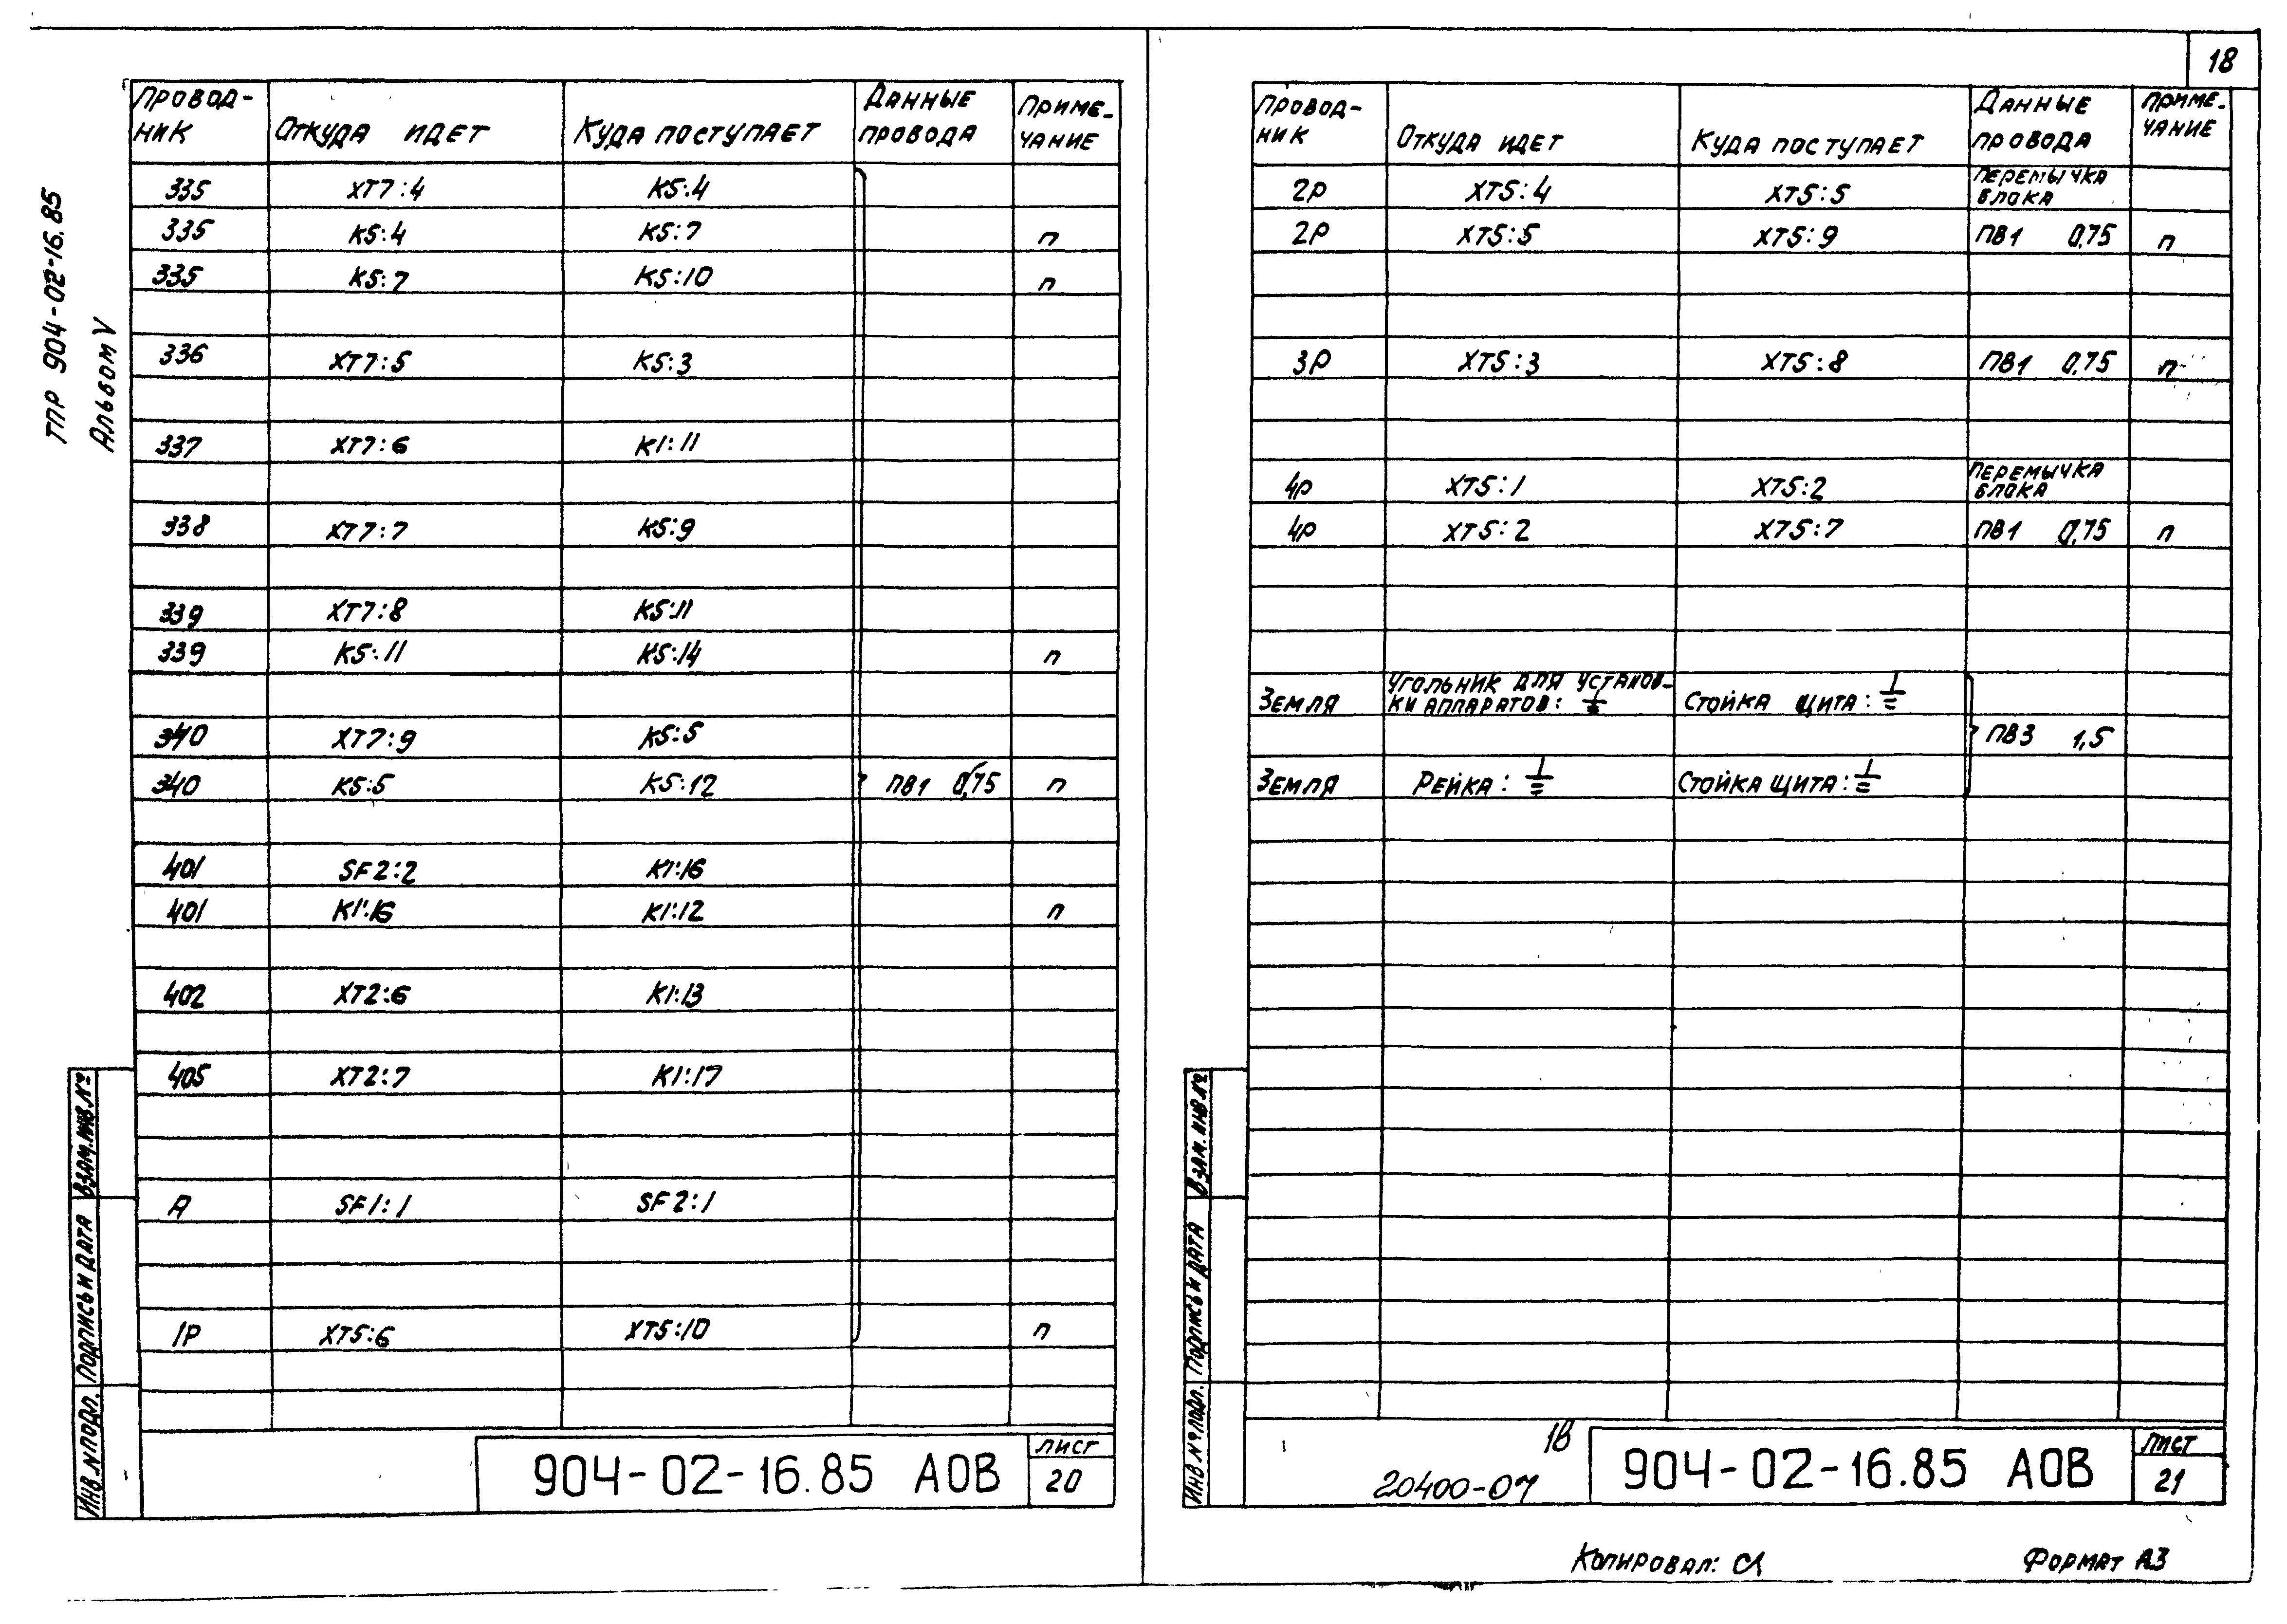 18
ТПР 904-02-16.85
Альбом V
Провод-ник Откуда идет Куда поступает Данные провода Приме-чание
335 XT7:4 K5:4
335 K5:4 K5:7 п
335 K5:7 K5:10 п
336 XT7:5 K5:3
337 XT7:6 K1:11
338 XT7:7 K5:9
339 XT7:8 K5:11
339 K5:11 K5:14 п
340 XT7:9 K5:5
340 K5:5 K5:12 ПВ1 0,75 п
401 SF2:2 K1:16
401 K1:16 K1:12 п
402 XT2:6 K1:13
405 XT2:7 K1:17
A SF1:1 SF2:1
1P XT5:6 XT5:10 п
Инв. № подл. Подпись и дата Взам. инв. №
904-02-16.85 АОВ
Лист
20
Провод-ник Откуда идет Куда поступает Данные провода Приме-чание
2P XT5:4 XT5:5 Перемычка блока
2P XT5:5 XT5:9 ПВ1 0,75 п
3P XT5:3 XT5:8 ПВ1 0,75 п
4P XT5:1 XT5:2 Перемычка блока
4P XT5:2 XT5:7 ПВ1 0,75 п
Земля Угольник для установ-ки аппаратов: ⏚ Стойка щита: ⏚
ПВ3 1,5
Земля Рейка: ⏚ Стойка щита: ⏚
Инв. № подл. Подпись и дата Взам. инв. №
18
20400-07
904-02-16.85 АОВ
Лист
21
Копировал:
Формат А3